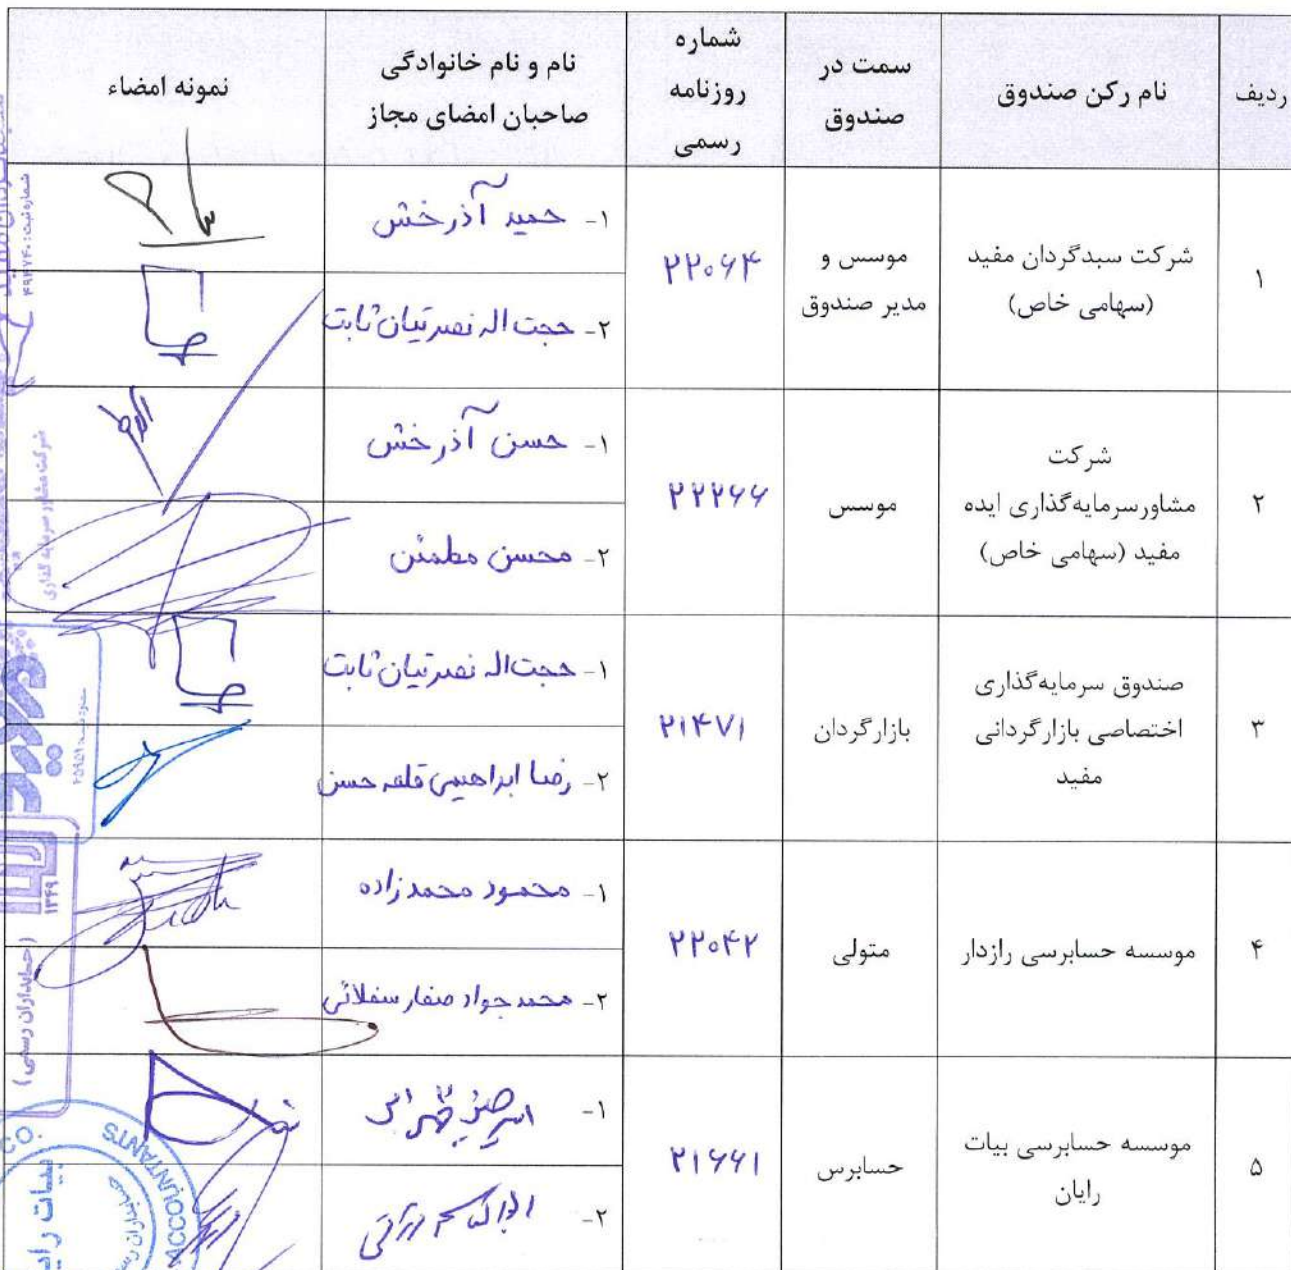 ردیف
نام رکن صندوق
سمت در
صندوق
شماره
روزنامه
رسمی
نام و نام خانوادگی
صاحبان امضای مجاز
نمونه امضاء
۱
شرکت سبدگردان مفید
(سهامی خاص)
موسس و
مدیر صندوق
۲۲۰۶۴
۱- حمید آذرخش
۲- حجت اله نصرتیان ثابت
۲
شرکت
مشاورسرمایه‌گذاری ایده
مفید (سهامی خاص)
موسس
۲۲۲۶۶
۱- حسن آذرخش
۲- محسن مطمئن
۳
صندوق سرمایه‌گذاری
اختصاصی بازارگردانی
مفید
بازارگردان
۲۱۴۷۱
۱- حجت اله نصرتیان ثابت
۲- رضا ابراهیمی قلعه حسن
۴
موسسه حسابرسی رازدار
متولی
۲۲۰۴۲
۱- محمود محمدزاده
۲- محمد جواد صفار سفلائی
۵
موسسه حسابرسی بیات
رایان
حسابرس
۲۱۶۶۱
۱-
۲-
شماره ثبت: ۴۹۴۷۴۰
شرکت مشاور سرمایه گذاری
۱۳۴۹
(حسابداران رسمی)
ACCOUNTANTS
CO.